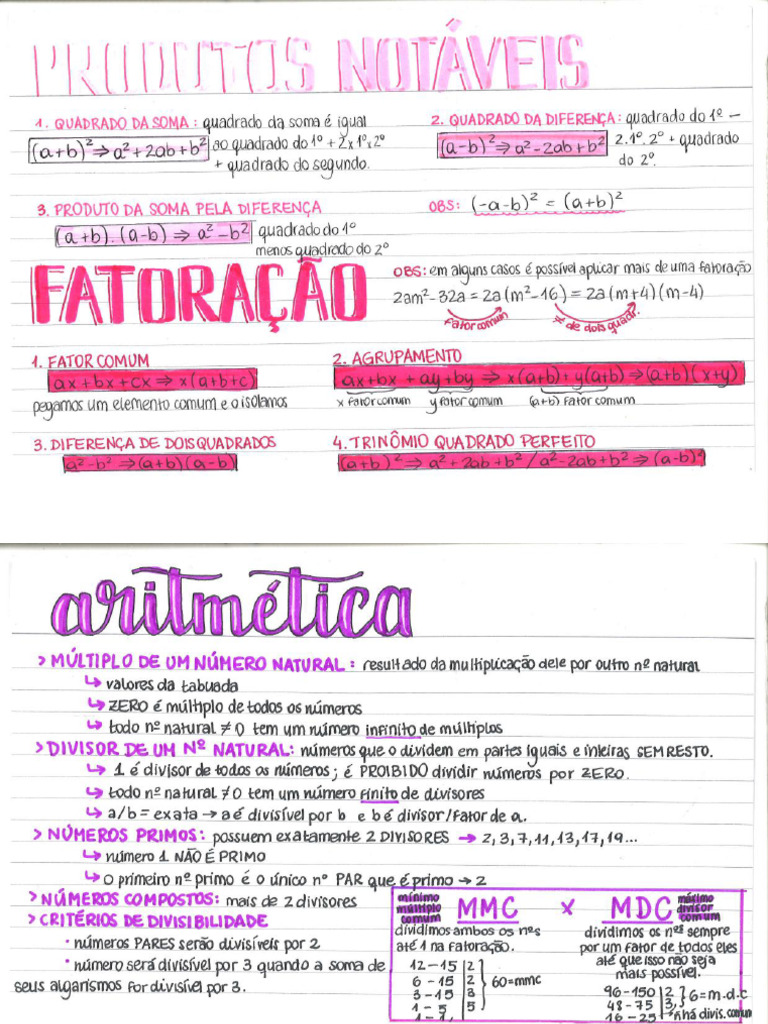 PRODUTOS NOTÁVEIS
1. QUADRADO DA SOMA : quadrado da soma é igual
(a+b)² ⇒ a² + 2ab + b² ao quadrado do 1º + 2x1ºx2º
+ quadrado do segundo.
2. QUADRADO DA DIFERENÇA: quadrado do 1º –
(a-b)² ⇒ a² - 2ab + b² 2.1º.2º + quadrado
do 2º.
3. PRODUTO DA SOMA PELA DIFERENÇA
(a+b).(a-b) ⇒ a² - b² quadrado do 1º
menos quadrado do 2º
OBS: (-a-b)² = (a+b)²
FATORAÇÃO
OBS: em alguns casos é possível aplicar mais de uma fatoração
2am² - 32a = 2a(m² - 16) = 2a(m+4)(m-4)
fator comum ≠ de dois quadr.
1. FATOR COMUM
ax + bx + cx ⇒ x(a+b+c)
pegamos um elemento comum e o isolamos
2. AGRUPAMENTO
ax+bx + ay+by ⇒ x(a+b) + y(a+b) ⇒ (a+b)(x+y)
x fator comum y fator comum (a+b) fator comum
3. DIFERENÇA DE DOIS QUADRADOS
a² - b² ⇒ (a+b)(a-b)
4. TRINÔMIO QUADRADO PERFEITO
(a+b)² ⇒ a² + 2ab + b² / a² - 2ab + b² ⇒ (a-b)²
aritmética
> MÚLTIPLO DE UM NÚMERO NATURAL : resultado da multiplicação dele por outro nº natural
↳ valores da tabuada
↳ ZERO é múltiplo de todos os números
↳ todo nº natural ≠ 0 tem um número infinito de múltiplos
> DIVISOR DE UM Nº NATURAL: números que o dividem em partes iguais e inteiras SEM RESTO.
↳ 1 é divisor de todos os números; é PROIBIDO dividir números por ZERO.
↳ todo nº natural ≠ 0 tem um número finito de divisores
↳ a/b = exata → a é divisível por b e b é divisor/fator de a.
> NÚMEROS PRIMOS: possuem exatamente 2 DIVISORES → 2, 3, 7, 11, 13, 17, 19...
↳ número 1 NÃO É PRIMO
↳ o primeiro nº primo é o único nº PAR que é primo → 2
> NÚMEROS COMPOSTOS: mais de 2 divisores
> CRITÉRIOS DE DIVISIBILIDADE
• números PARES serão divisíveis por 2
• número será divisível por 3 quando a soma de
seus algarismos for divisível por 3.
mínimo múltiplo comum MMC x MDC máximo divisor comum
dividimos ambos os nºs
até 1 na fatoração.
12 - 15 | 2
6 - 15 | 2
3 - 15 | 3
1 - 5 | 5
1 - 1
60 = mmc
dividimos os nºs sempre
por um fator de todos eles
até que isso não seja
mais possível.
96 - 150 | 2
48 - 75 | 3
16 - 25
6 = m.d.c
ñ há divis. comum